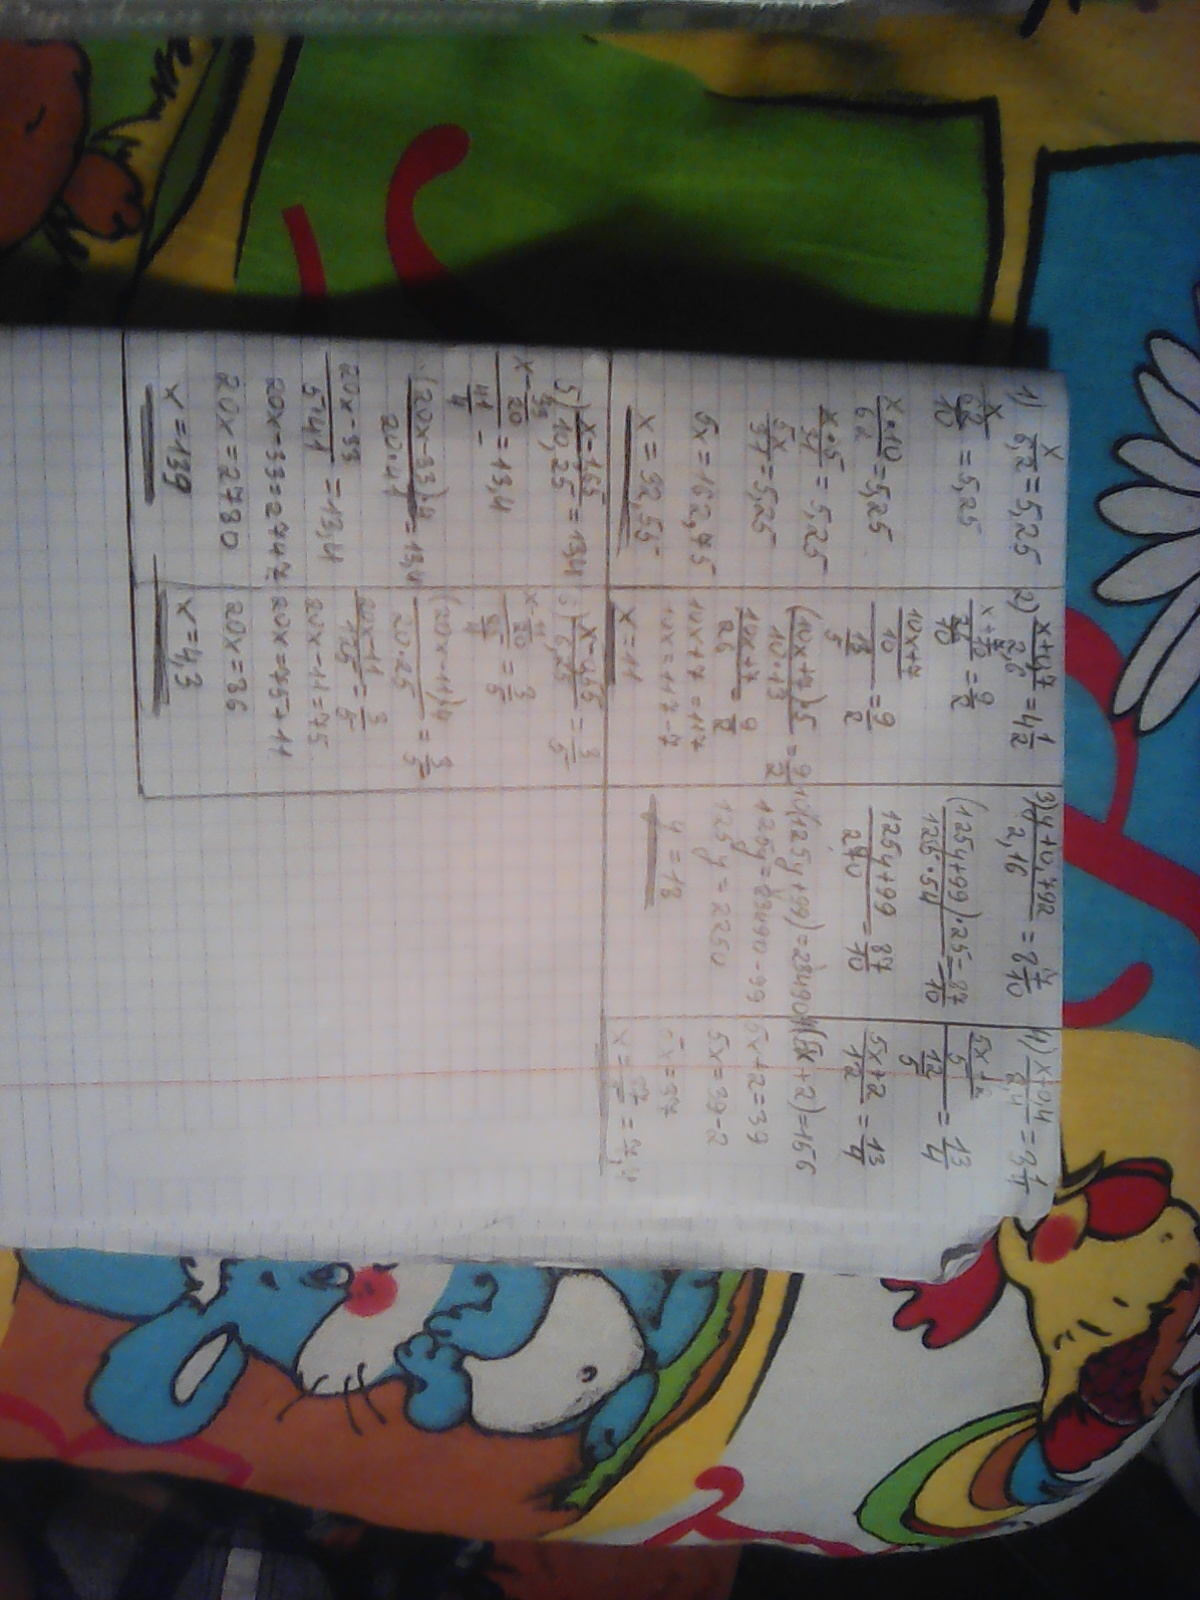 1) x/6,2 = 5,25
x/(62/10) = 5,25
x·10/62 = 5,25
x·5/31 = 5,25
5x/31 = 5,25
5x = 162,75
x = 32,55
2) x+4,7/2,6 = 4 1/2
= 9/2
10x+7/10
13/5 = 9/2
(10x+7)·5/10·13 = 9/2
10x+7/26 = 9/2
10x+7 = 117
10x = 117-7
x = 11
3) y+0,792/2,16 = 8 7/10
(125y+99)·25/125·54 = 87/10
125y+99/270 = 87/10
10(125y+99) = 23490
125y = 23490-99
125y = 2250
y = 18
4) x+0,4/2,4 = 3 1/4
5x+2/5
12/5 = 13/4
5x+2/12 = 13/4
4(5x+2) = 156
5x+2 = 39
5x = 39-2
5x = 37
= 7,4
5) x-1,65/10,25 = 13,4
x- 33/20
41/4 = 13,4
(20x-33)4/20·41 = 13,4
20x-33/5·41 = 13,4
20x-33 = 2747
20x = 2780
x = 139
= 3/5
25/4 = 3/5
(20x-11)4/20·25 = 3/5
20x-11/125 = 3/5
20x-11 = 75
20x = 75+11
20x = 86
x = 4,3